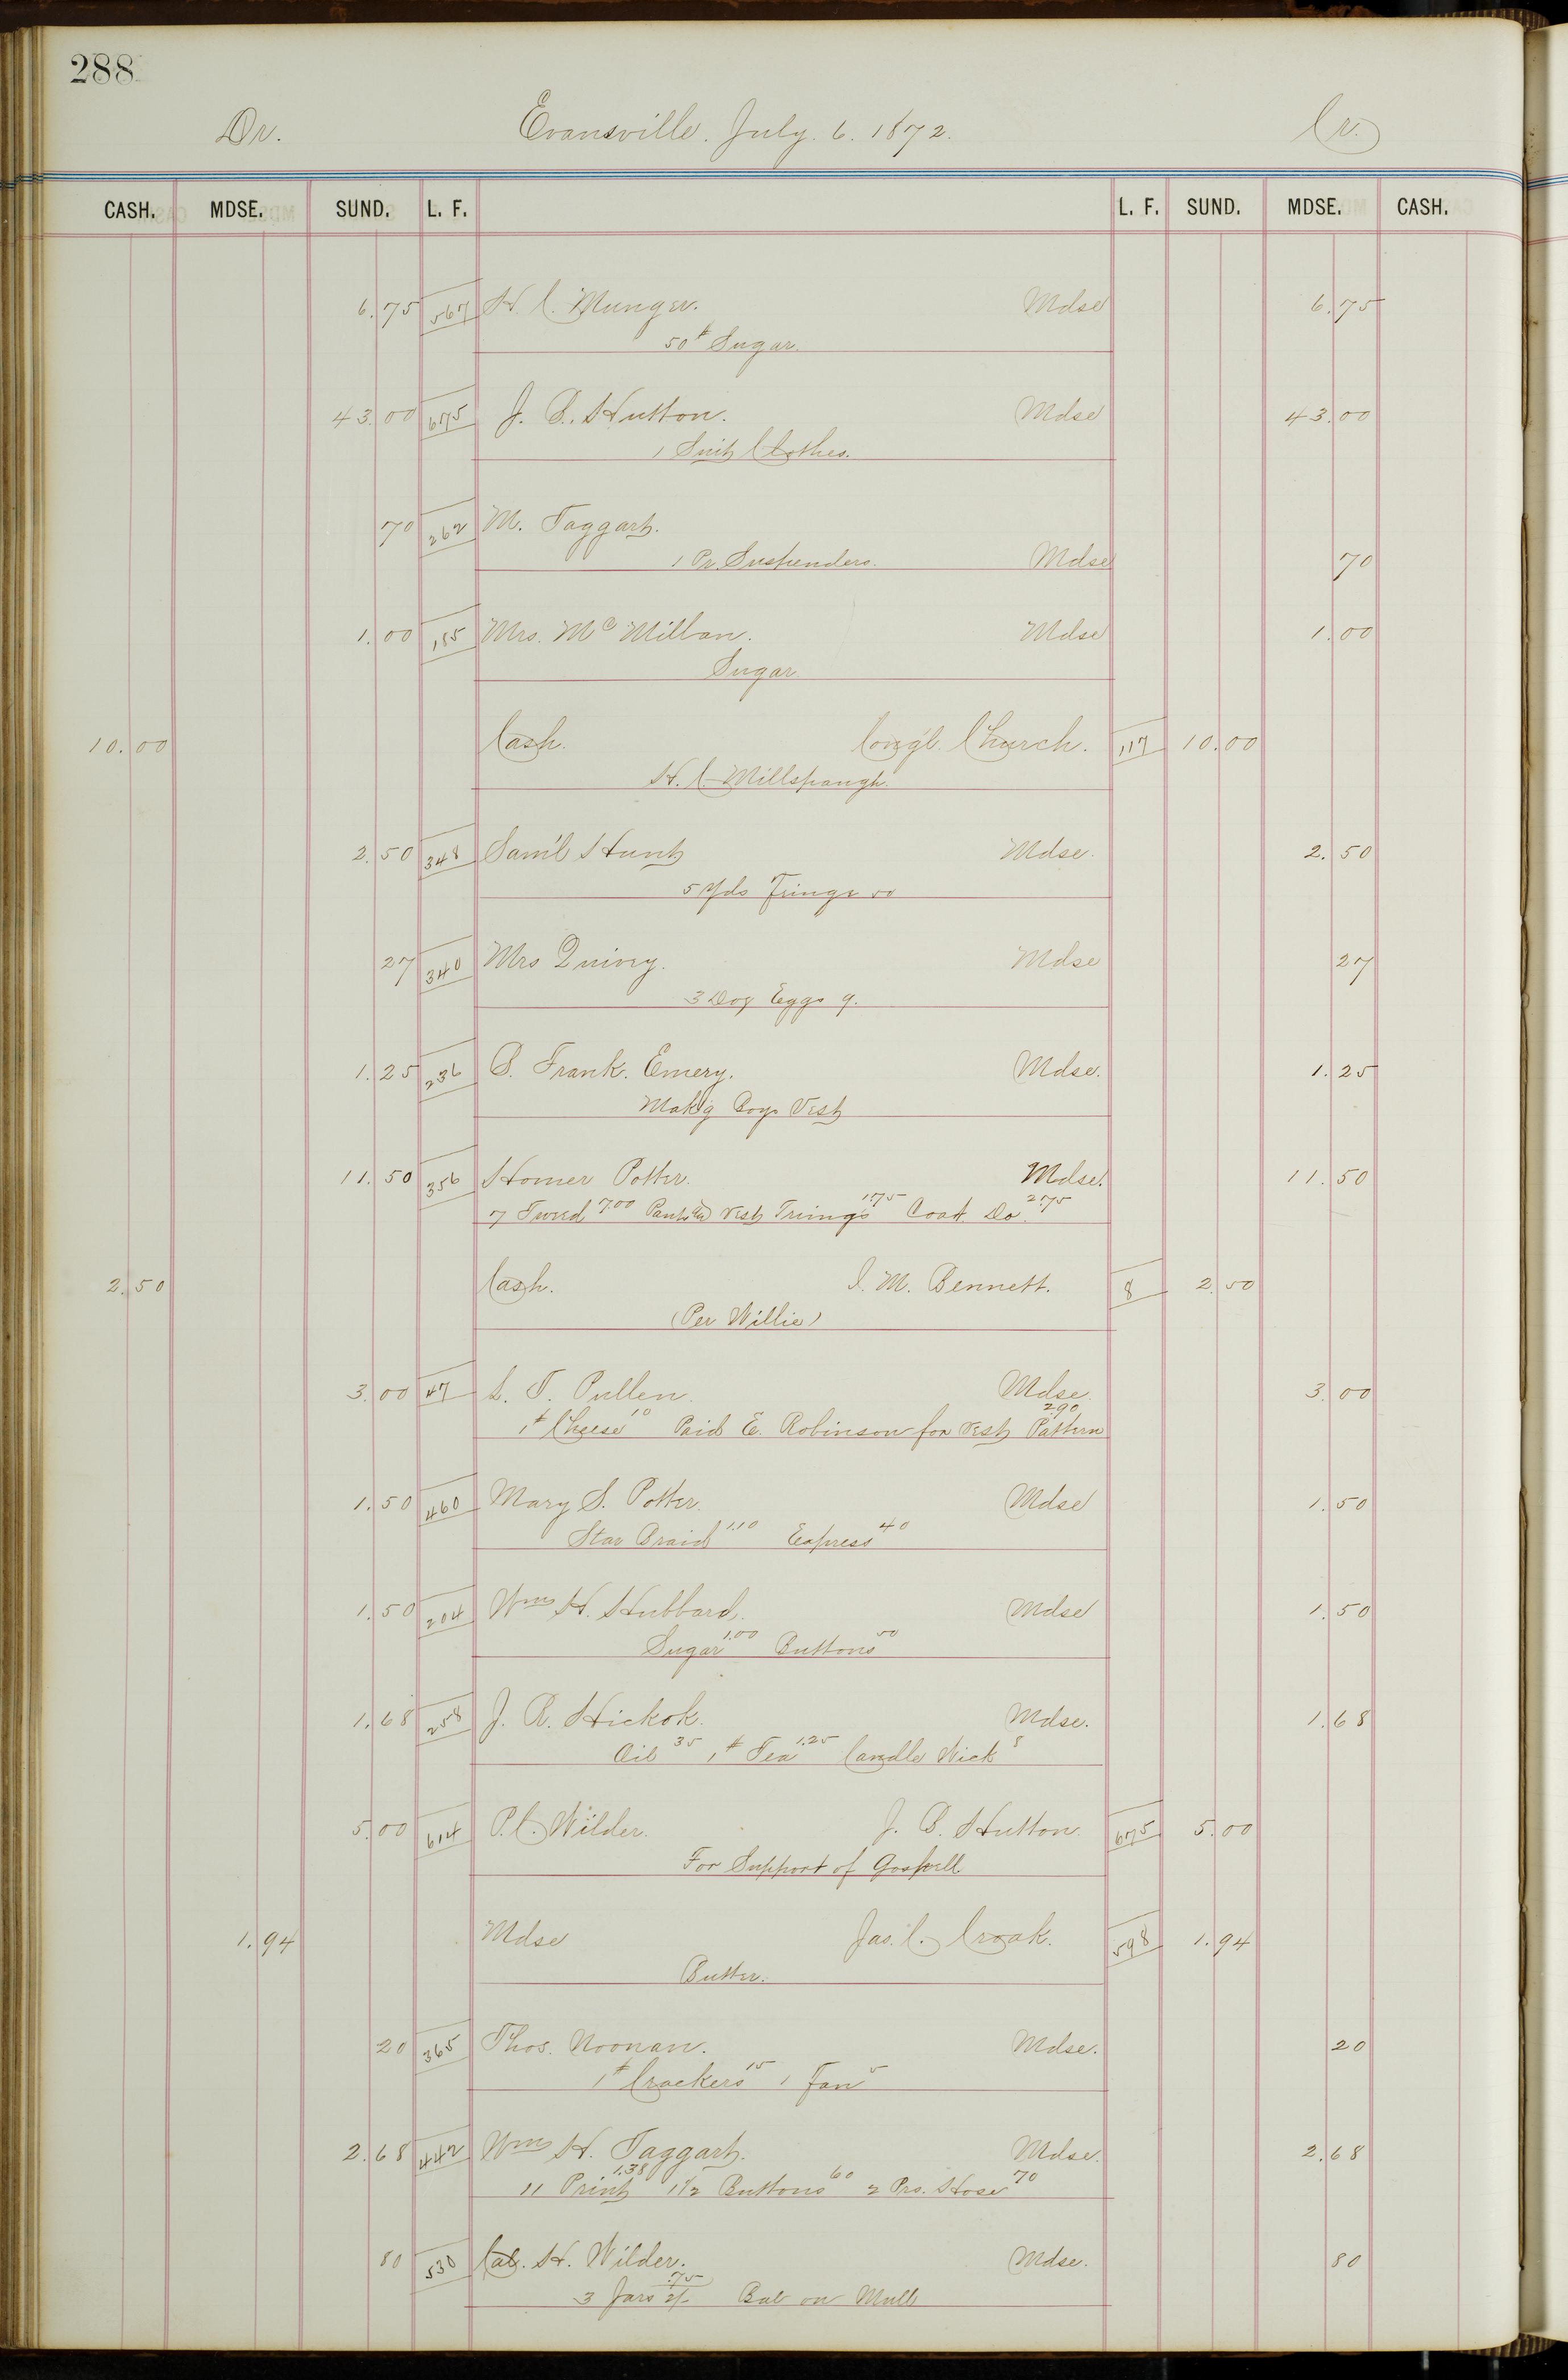 288
Dr. Evansville. July. 6. 1872. Cr.
CASH. MDSE. SUND. L. F. L. F. SUND. MDSE. CASH.
6.75 567 H. C. Munger. Mdse 6.75
50# Sugar.
43.00 675 J. B. Hutton. Mdse 43.00
1 Suit Clothes.
70 262 M. Taggart.
1 Pr. Suspenders. Mdse 70
1.00 155 Mrs. Mc Millan. Mdse 1.00
Sugar.
10.00 Cash. Cong'l. Church. 117 10.00
H. C. Millspaugh.
2.50 348 Sam'l Hunt Mdse. 2.50
5 Yds Fringe 50
27 340 Mrs Quivey. Mdse 27
3 Doz Eggs 9.
1.25 236 B. Frank. Emery. Mdse. 1.25
Mak'g Boys Vest
11.50 356 Homer Potter. Mdse. 11.50
7 Tweed 7.00 Pants & Vest Trimg's 1.75 Coat Do. 2.75
2.50 Cash. I. M. Bennett. 8 2.50
(Per Willie)
3.00 47 L. T. Pullen. Mdse. 3.00
1# Cheese 10 Paid E. Robinson for Vest Pattern 2.90
1.50 460 Mary S. Potter. Mdse 1.50
Star Braid 1.10 Express 40
1.50 204 Wm H. Hubbard. Mdse 1.50
Sugar 1.00 Buttons 50
1.68 258 J. R. Hickok. Mdse. 1.68
Oil 35 1# Tea 1.25 Candle Wick 8
5.00 614 P. C. Wilder. J. B. Hutton. 675 5.00
For Support of Gospell
1.94 Mdse Jas. C. Croak. 598 1.94
Butter.
20 365 Thos. Noonan. Mdse. 20
1# Crackers 15 1 Fan 5
2.68 442 Wm H. Taggart. Mdse. 2.68
11 Print 1.38 1 1/2 Buttons 60 2 Prs. Hose 70
80 530 Cal. H. Wilder. Mdse. 80
3 Jars 2/- .75 Bal on Mull